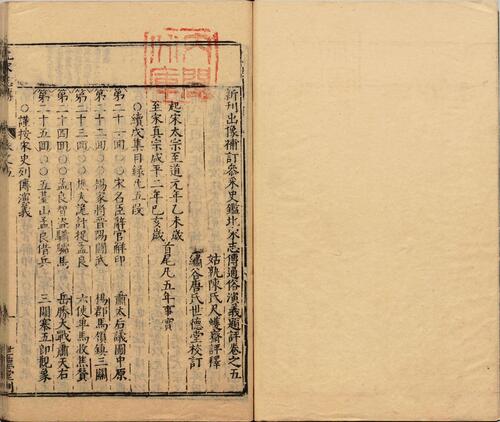 新刊出像補訂參采史鑑北宋志傳通俗演義題評卷之五
姑孰陳氏尺蠖齋評釋
繡谷唐氏世德堂校訂
起宋太宗至道元年乙未歲
至宋真宗咸平二年己亥歲
首尾凡五年事實
○續戊集目錄凡五段
第二十一回○○宋名臣辭官解印 蕭太后議圖中原
第二十二回○○楊家將晉陽鬪武 楊郡馬領鎮三關
第二十三回○○樵夫詭計捉孟良 六使單馬收焦贊
第二十四回○○孟良智盜驌驦馬 岳勝大戰蕭天右
第二十五回○○五臺山孟良借兵 三關寨五郎觀象
○謹按宋史列傳演義
卷之五
世德堂刊
內閣文庫